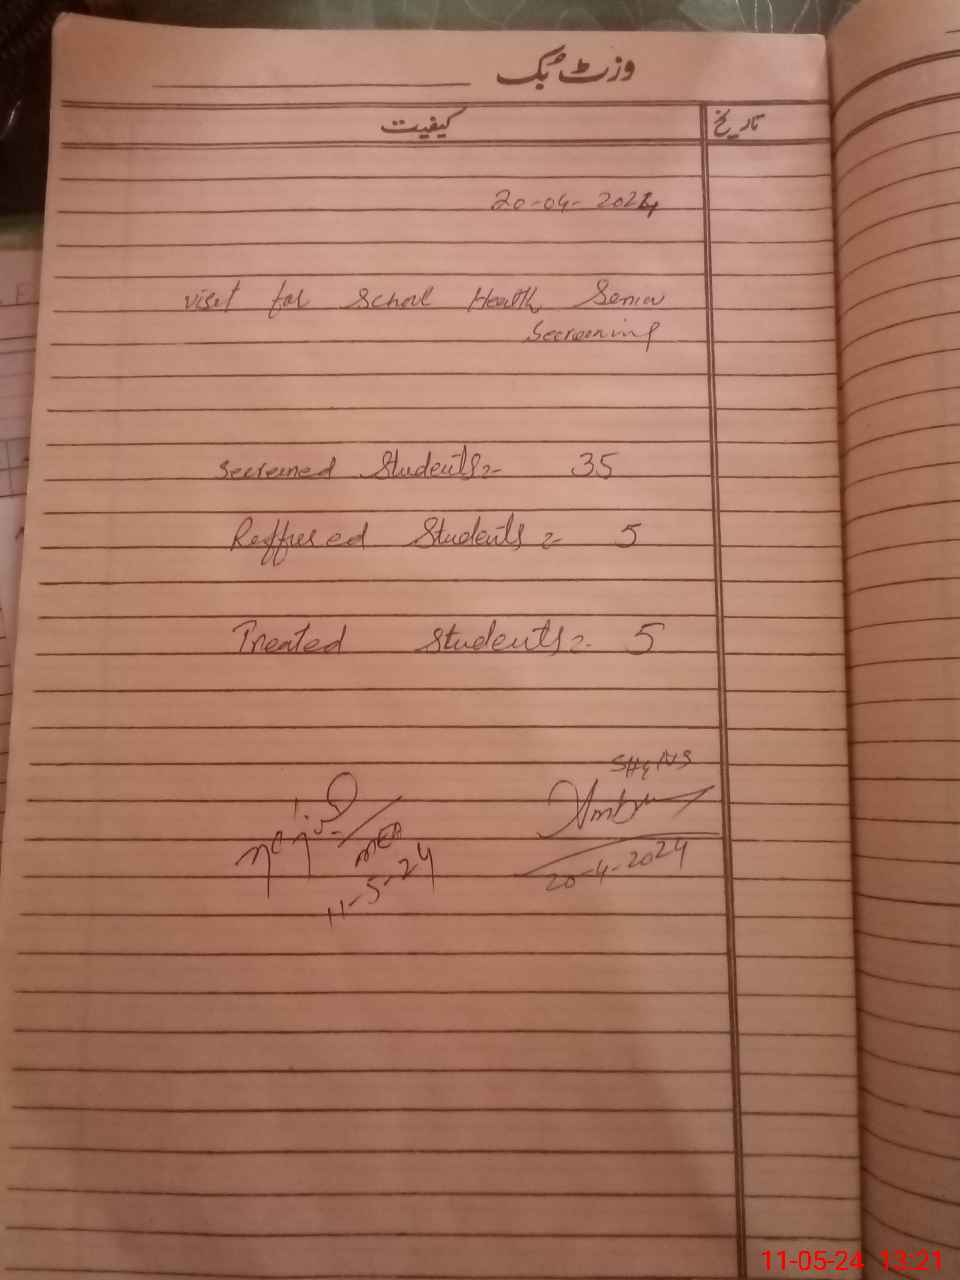 وزٹ بک
کیفیت تاریخ
20-04-2024
visit for School Health
Secreening
Secreened Students = 35
Reffered Students = 5
Treated Students = 5
MEA
11-5-24
20-4-2024
11-05-24 13:21